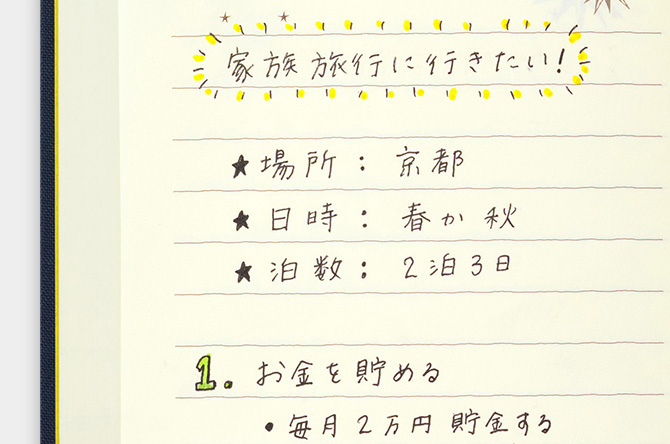 家族旅行に行きたい!
★場所：京都
★日時：春か秋
★泊数：2泊3日
1. お金を貯める
・毎月2万円貯金する